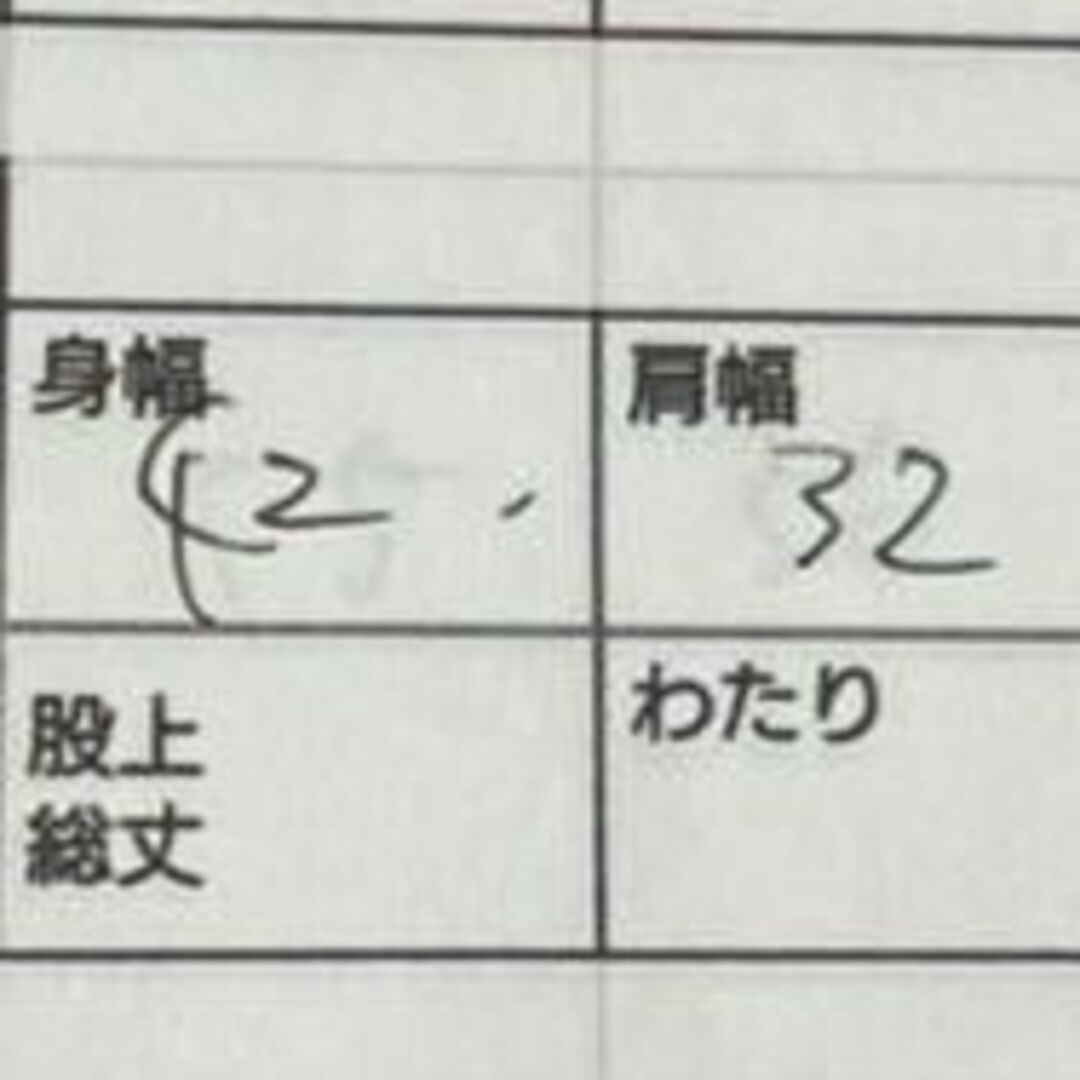 身幅 肩幅
42 32
股上 わたり
総丈